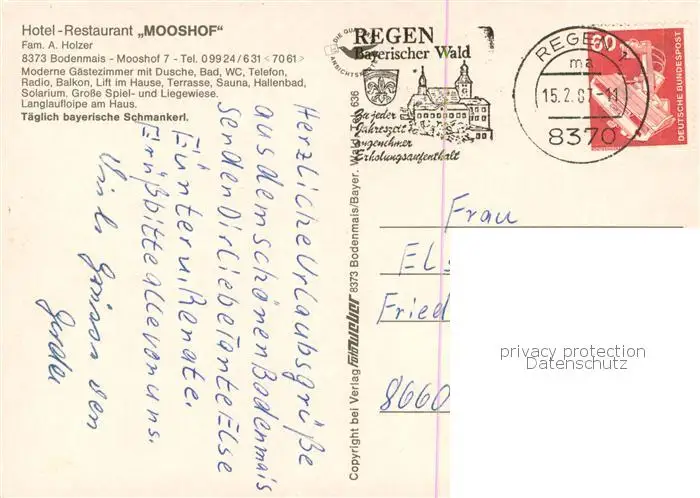 Hotel-Restaurant „MOOSHOF“
Fam. A. Holzer
8373 Bodenmais - Mooshof 7 - Tel. 09924/631 <7061>
Moderne Gästezimmer mit Dusche, Bad, WC, Telefon,
Radio, Balkon, Lift im Hause, Terrasse, Sauna, Hallenbad,
Solarium. Große Spiel- und Liegewiese.
Langlaufloipe am Haus.
Täglich bayerische Schmankerl.
Herzliche Urlaubsgrüße
aus dem schönen Bodenmais
senden Dir liebe Tante Else
Günter u. Renate.
Grüß bitte alle von uns.
Viele Grüsse von
Gerda
REGEN
Bayerischer Wald
Zu jeder
Jahreszeit
angenehmer
Erholungsaufenthalt
REGEN
ma
15.2.81-11
8370
60
DEUTSCHE BUNDESPOST
Copyright bei Verlag Foto Weber 8373 Bodenmais/Bayer. Wald
636
Frau
Els
Fried
8660
privacy protection
Datenschutz